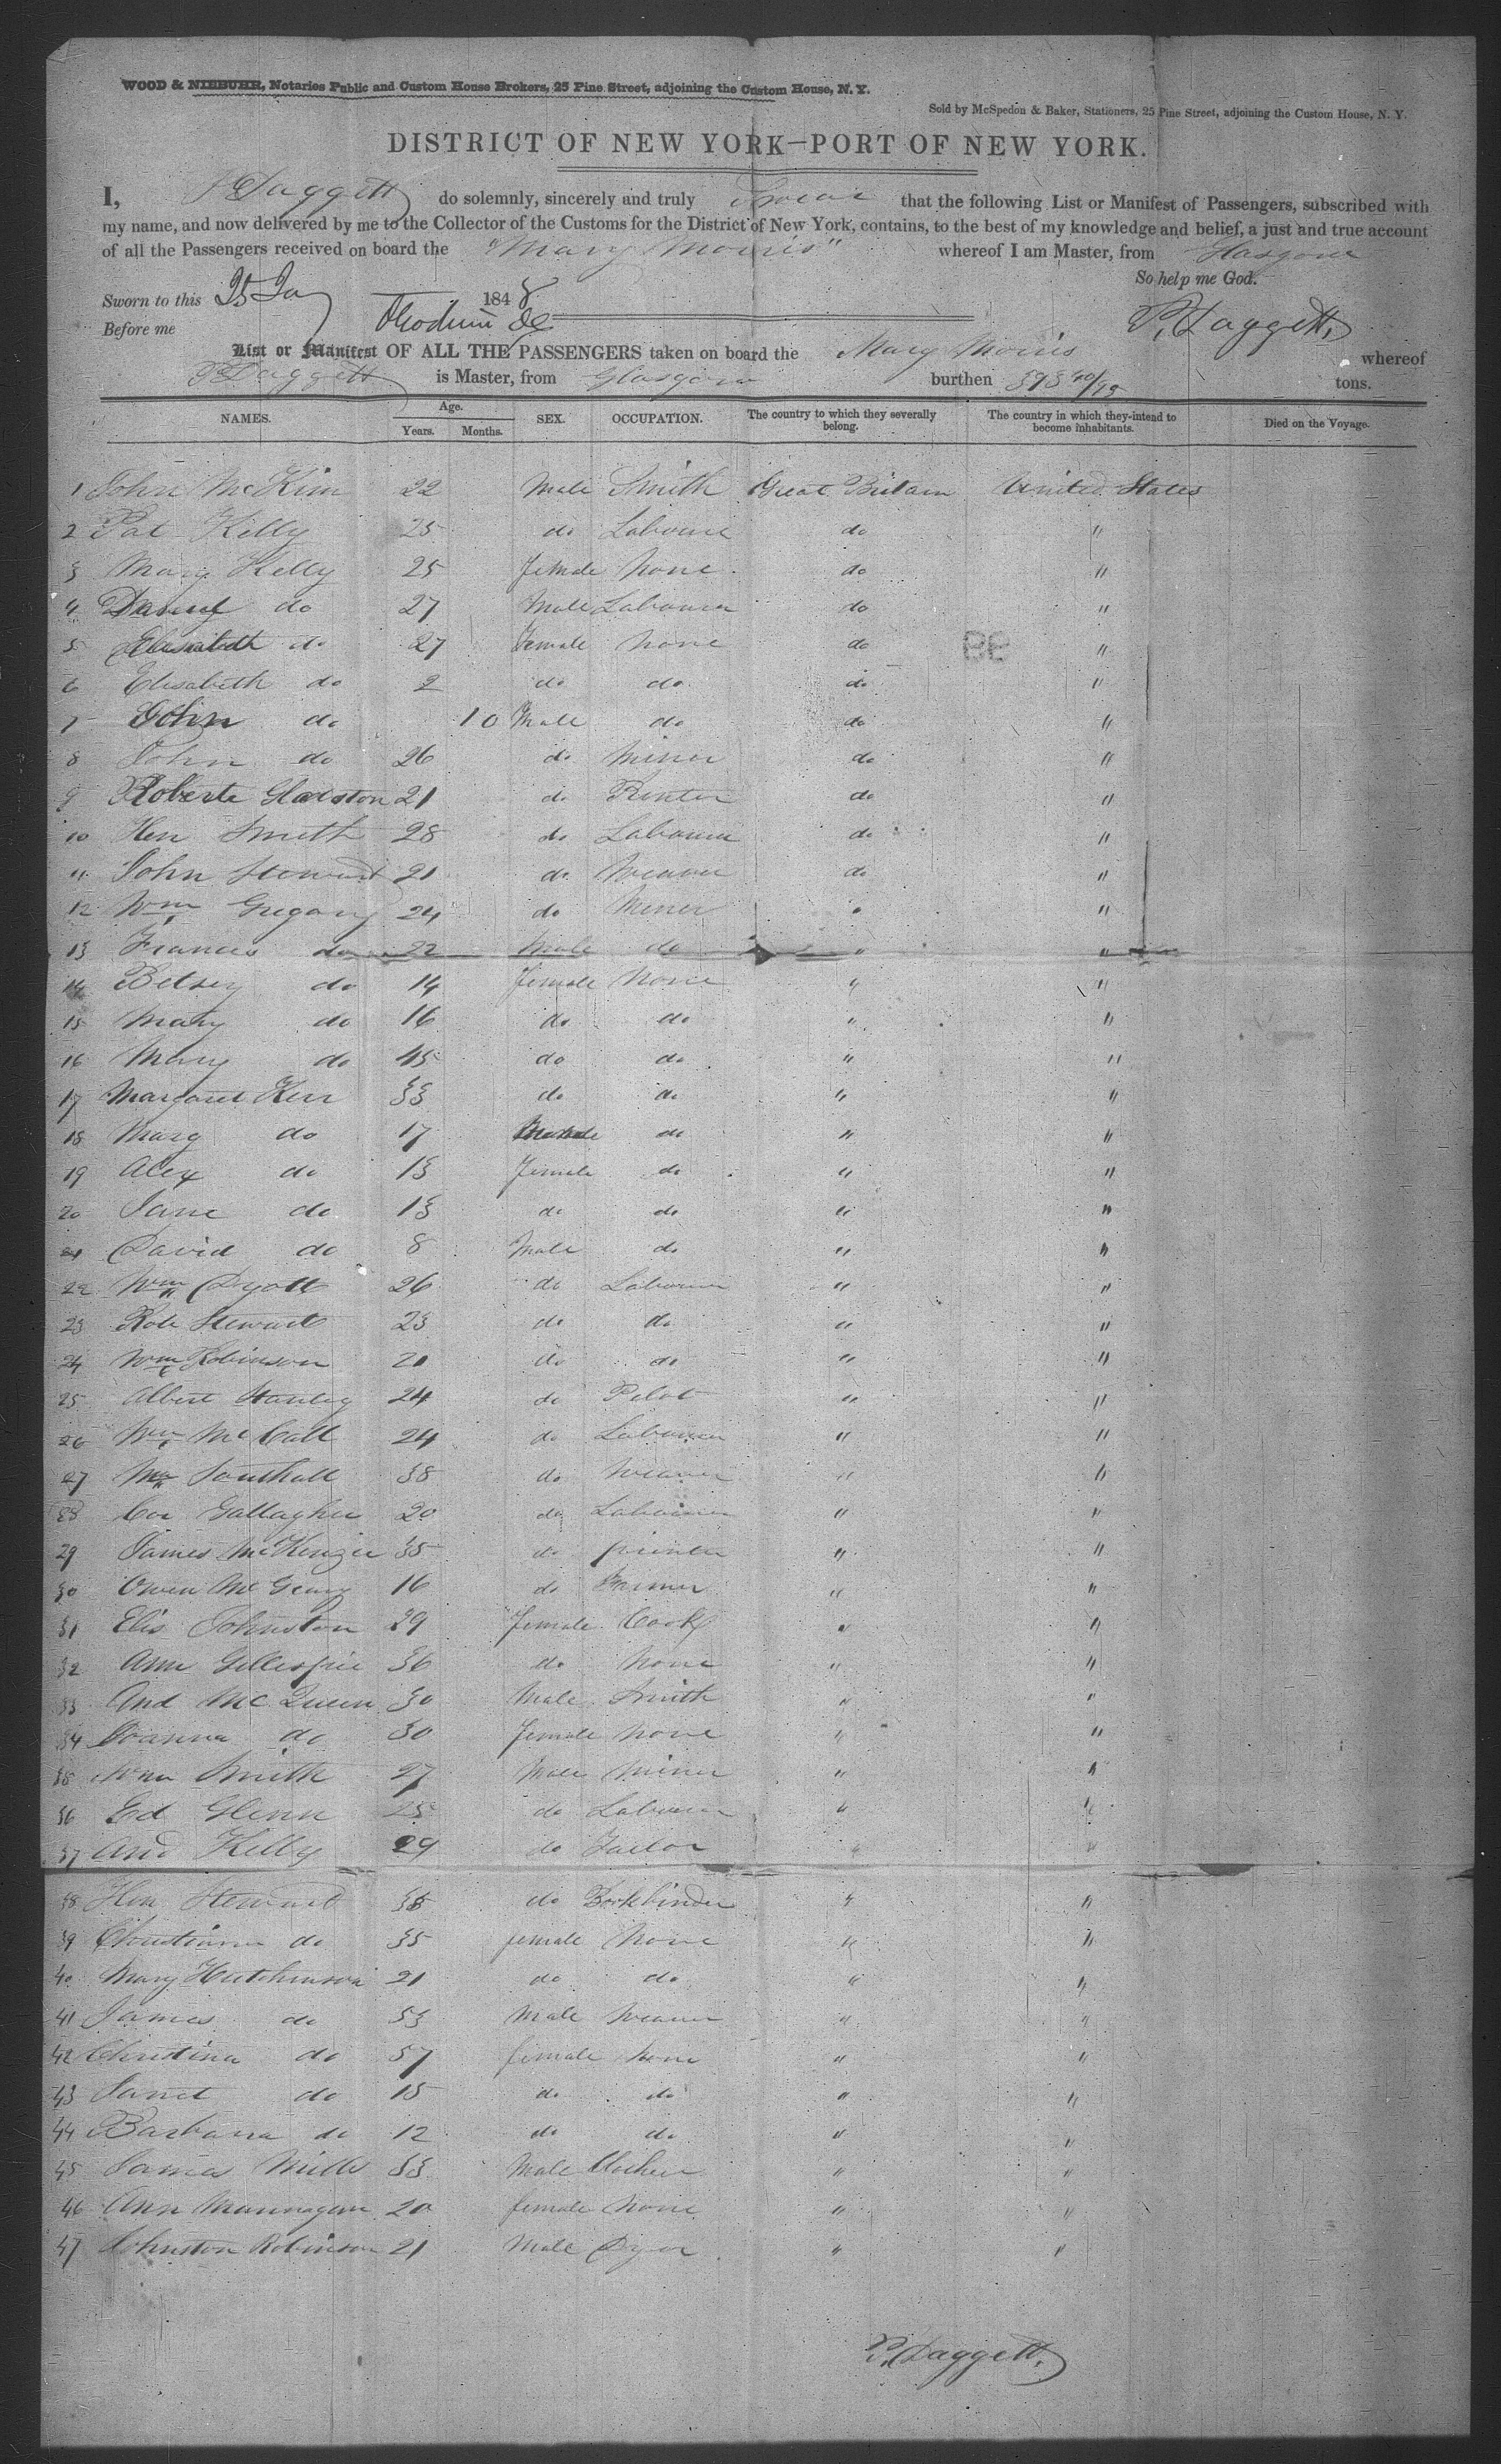 WOOD & NIEBUHR, Notaries Public and Custom House Brokers, 25 Pine Street, adjoining the Custom House, N. Y.
Sold by McSpedon & Baker, Stationers, 25 Pine Street, adjoining the Custom House, N. Y.
DISTRICT OF NEW YORK—PORT OF NEW YORK.
I, P Daggett do solemnly, sincerely and truly Swear that the following List or Manifest of Passengers, subscribed with
my name, and now delivered by me to the Collector of the Customs for the District of New York, contains, to the best of my knowledge and belief, a just and true account
of all the Passengers received on board the "Mary Morris" whereof I am Master, from Glasgow
So help me God.
Sworn to this 25 Jay 1848
Before me P. Daggett
List or Manifest OF ALL THE PASSENGERS taken on board the Mary Morris whereof
P Daggett is Master, from Glasgow burthen tons.
NAMES. Age. Years. Months. SEX. OCCUPATION. The country to which they severally belong. The country in which they intend to become inhabitants. Died on the Voyage.
1 John McKim 22 Male Smith Great Britain United States
2 Pat Kelly 25 do Labourer do "
3 Mary Kelly 25 female None do "
4 Daniel do 27 Male Labourer do "
5 Elisabeth do 27 Female None do BE "
6 Elisabeth do 2 do do do "
7 John do 10 Male do do "
8 John do 26 do Miner do "
9 Roberte 21 do do "
10 Hen Smith 28 do Labourer do "
11 John Steward 21 do Weaver do "
12 Wm Gregory 24 do Miner " "
13 Frances do 22 Male do " "
14 Betsey do 14 female None " "
15 Mary do 16 do do " "
16 Mary do 45 do do " "
17 Margaret Kerr 33 do do " "
18 Mary do 17 do " "
19 Alex do 13 female do " "
20 Jane do 13 do do " "
21 David do 8 Male do " "
22 Wm Dyott 26 do Labourer " "
23 Robt Stewart 23 do do " "
24 Wm Robinson 20 do do " "
25 Albert Stanley 24 do Pilot " "
26 Wm McCall 24 do Labourer " "
27 Southall 38 do Weaver " "
28 Gallagher 20 do Labourer " "
29 James McKenzie 35 do printer " "
30 Owen McGeary 16 do Farmer " "
31 Elis Johnston 29 female Cook " "
32 Ann Gillespie 36 do None " "
33 And McQueen 30 Male Smith " "
34 Joanna do 30 female None " "
35 Wm Smith 27 Male Miner " "
36 Ed Glenn 25 do Labourer " "
37 And Kelly 29 do Tailor " "
38 Hen Steward 35 do Bookbinder " "
39 Christiana do 35 female None " "
40 Mary Hutchinson 21 do do " "
41 James do 53 Male Weaver " "
42 Christina do 57 female None " "
43 Janet do 15 do do " "
44 Barbara do 12 do do " "
45 James Mills 33 Male " "
46 Ann 20 female None " "
47 Johnston Robinson 21 Male Dyer " "
P. Daggett.